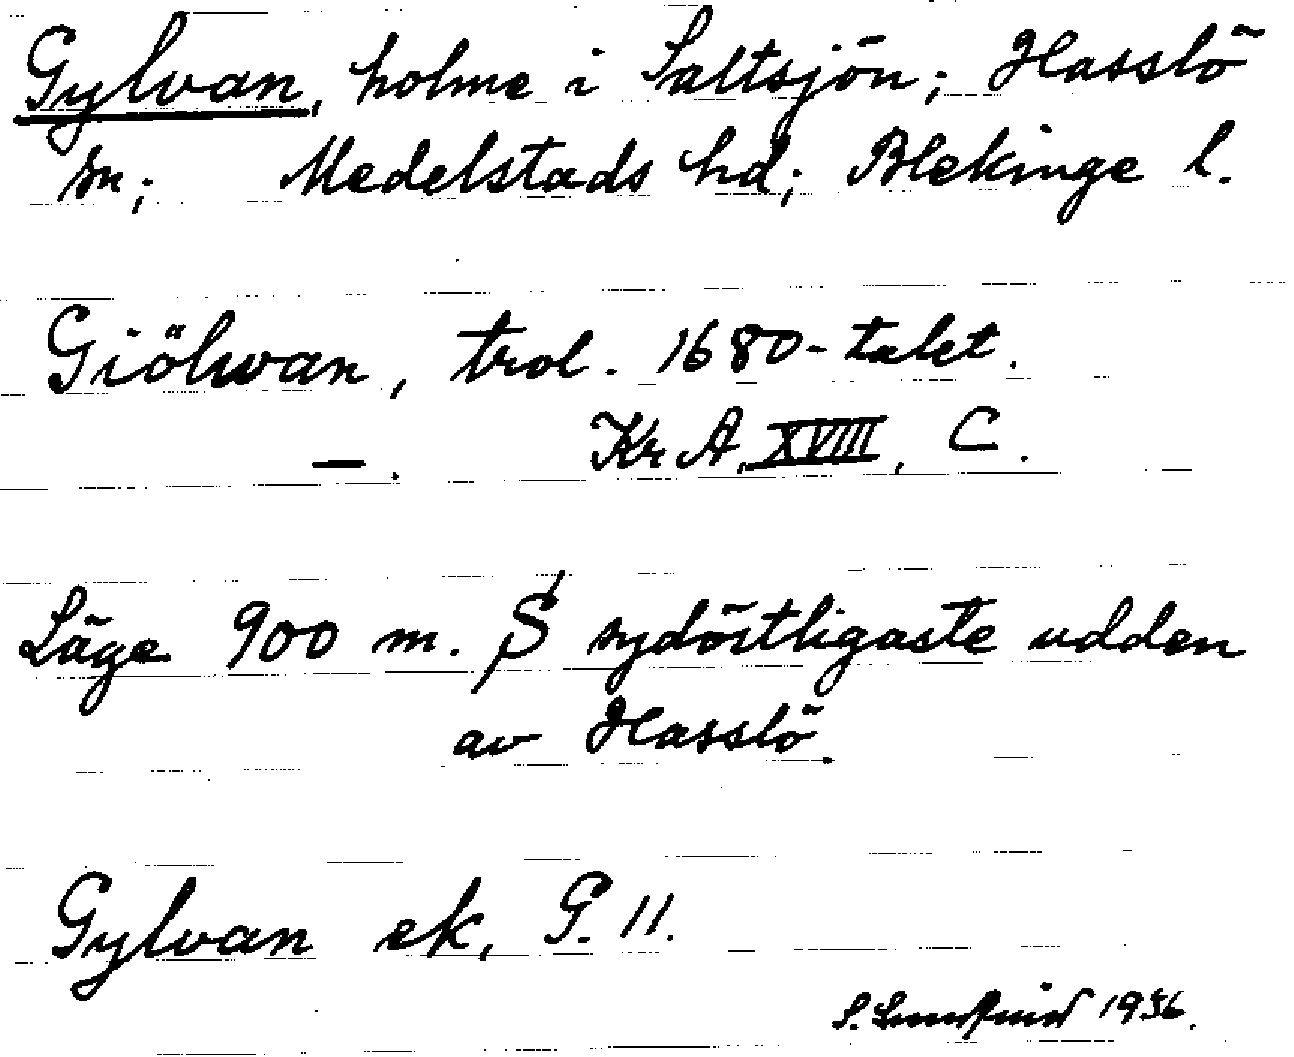 Gylvan, holme i Saltsjön; Hasslö
sn; Medelstads hd; Blekinge l.
Giölwan, trol. 1680-talet.
—. Kr A, XVIII, C.
Läge 900 m. S sydöstligaste udden
av Hasslö.
Gylvan ek, G. 11.
S. 1936.